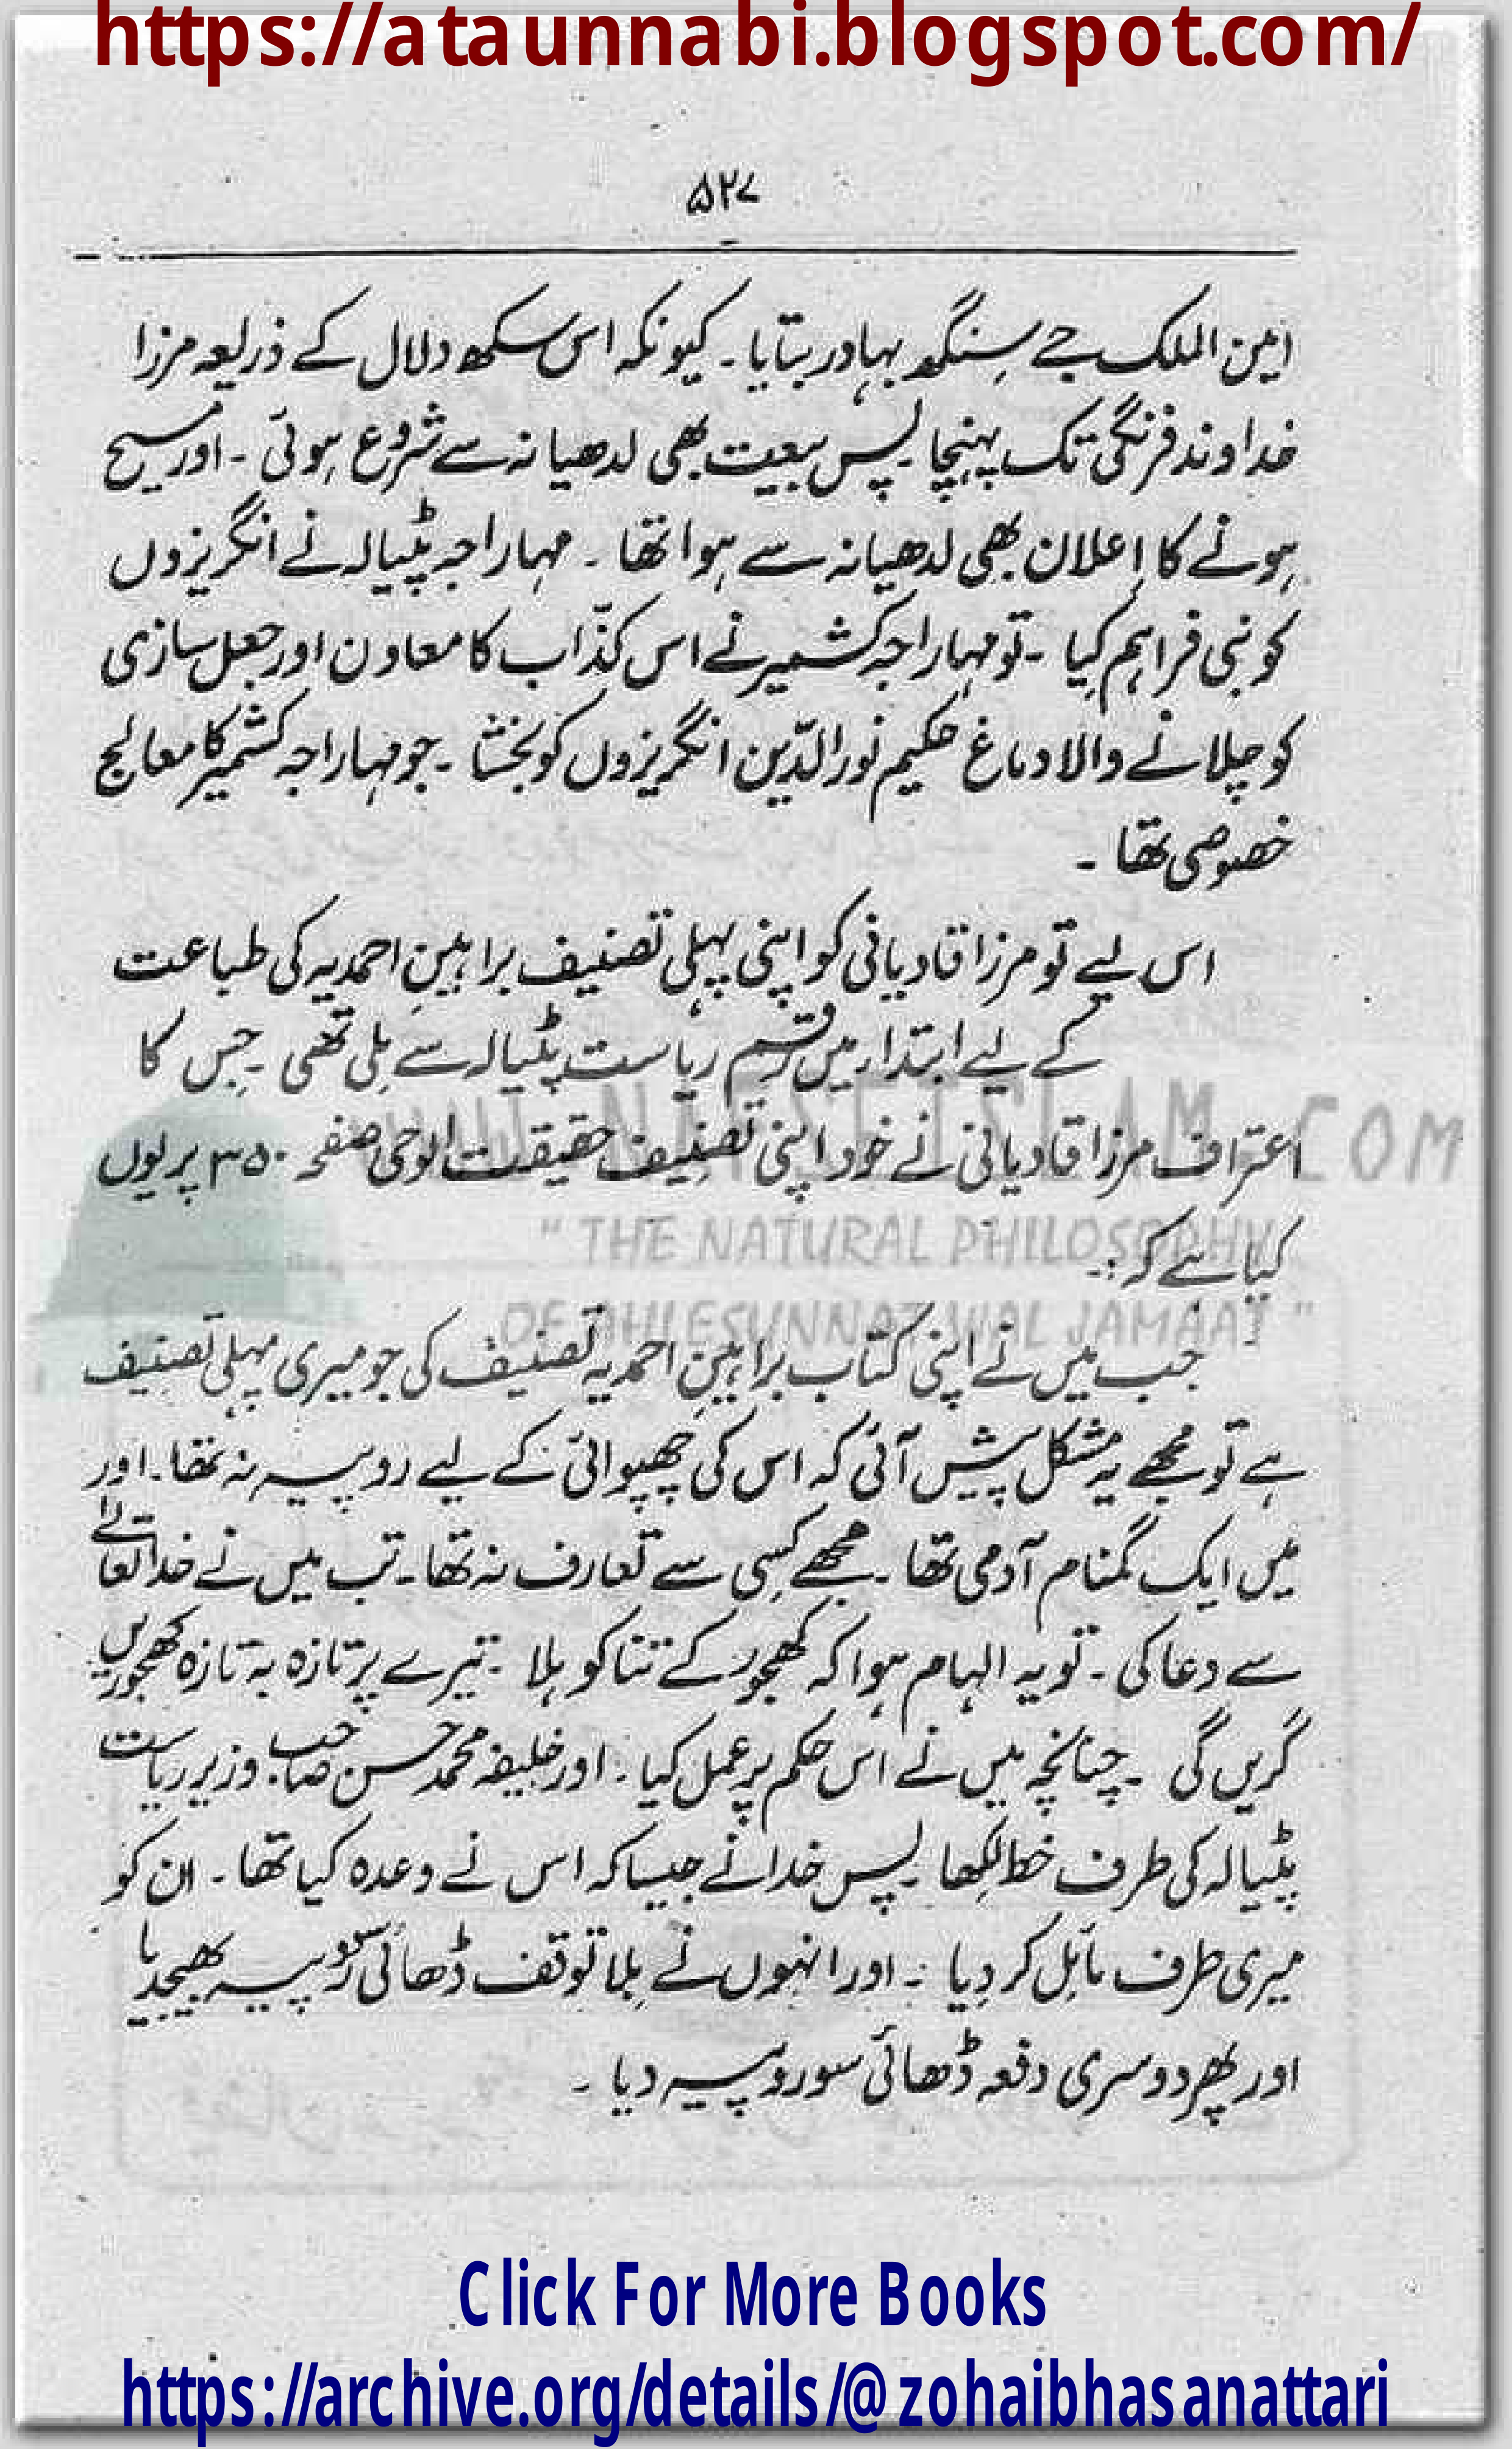 https://ataunnabi.blogspot.com/
۵۲۷
امین الملک جے سنگھ بہادر بتایا ۔ کیونکہ اس سکھ دلال کے ذریعہ مرزا
خداوند فرنگی تک پہنچا ۔ پس بیعت بھی لدھیانہ سے شروع ہوئی ۔ اور مسیح
ہونے کا اعلان بھی لدھیانہ سے ہوا تھا ۔ مہاراجہ پٹیالہ نے انگریزوں
کو نبی فراہم کیا ۔ تو مہاراجہ کشمیر نے اس کذّاب کا معاون اور جعل سازی
کو چلانے والا دماغ حکیم نور الدّین انگریزوں کو بخشا ۔ جو مہاراجہ کشمیر کا معالج
خصوصی تھا ۔
اس لیے تو مرزا قادیانی کو اپنی پہلی تصنیف براہینِ احمدیہ کی طباعت
کے لیے ابتدار میں رقم ریاست پٹیالہ سے ملی تھی ۔ جس کا
اعتراف مرزا قادیانی نے خود اپنی تصنیف حقیقت الوحی صفحہ ۳۵۰ پر یوں
کیا ہے کہ :۔
WWW.NAFSEISLAM.COM
" THE NATURAL PHILOSOPHY
OF AHLESUNNAT WAL JAMAAT "
جب میں نے اپنی کتاب براہینِ احمدیہ تصنیف کی جو میری پہلی تصنیف
ہے تو مجھے یہ مشکل پیش آئی کہ اس کی چھپوائی کے لیے روپیہ نہ تھا ۔ اور
میں ایک گمنام آدمی تھا ۔ مجھے کسی سے تعارف نہ تھا ۔ تب میں نے خدا تعالےٰ
سے دعا کی ۔ تو یہ الہام ہوا کہ کھجور کے تنا کو ہلا ۔ تیرے پر تازہ بہ تازہ کھجوریں
گریں گی ۔ چنانچہ میں نے اس حکم پر عمل کیا ۔ اور خلیفہ محمد حسن صاحب وزیر ریاست
پٹیالہ کی طرف خط لکھا ۔ پس خدا نے جیسا کہ اس نے وعدہ کیا تھا ۔ ان کو
میری طرف مائل کر دیا ۔ اور انہوں نے بلا توقف ڈھائی سو روپیہ بھیجدیا
اور پھر دوسری دفعہ ڈھائی سو روپیہ دیا ۔
Click For More Books
https://archive.org/details/@zohaibhasanattari